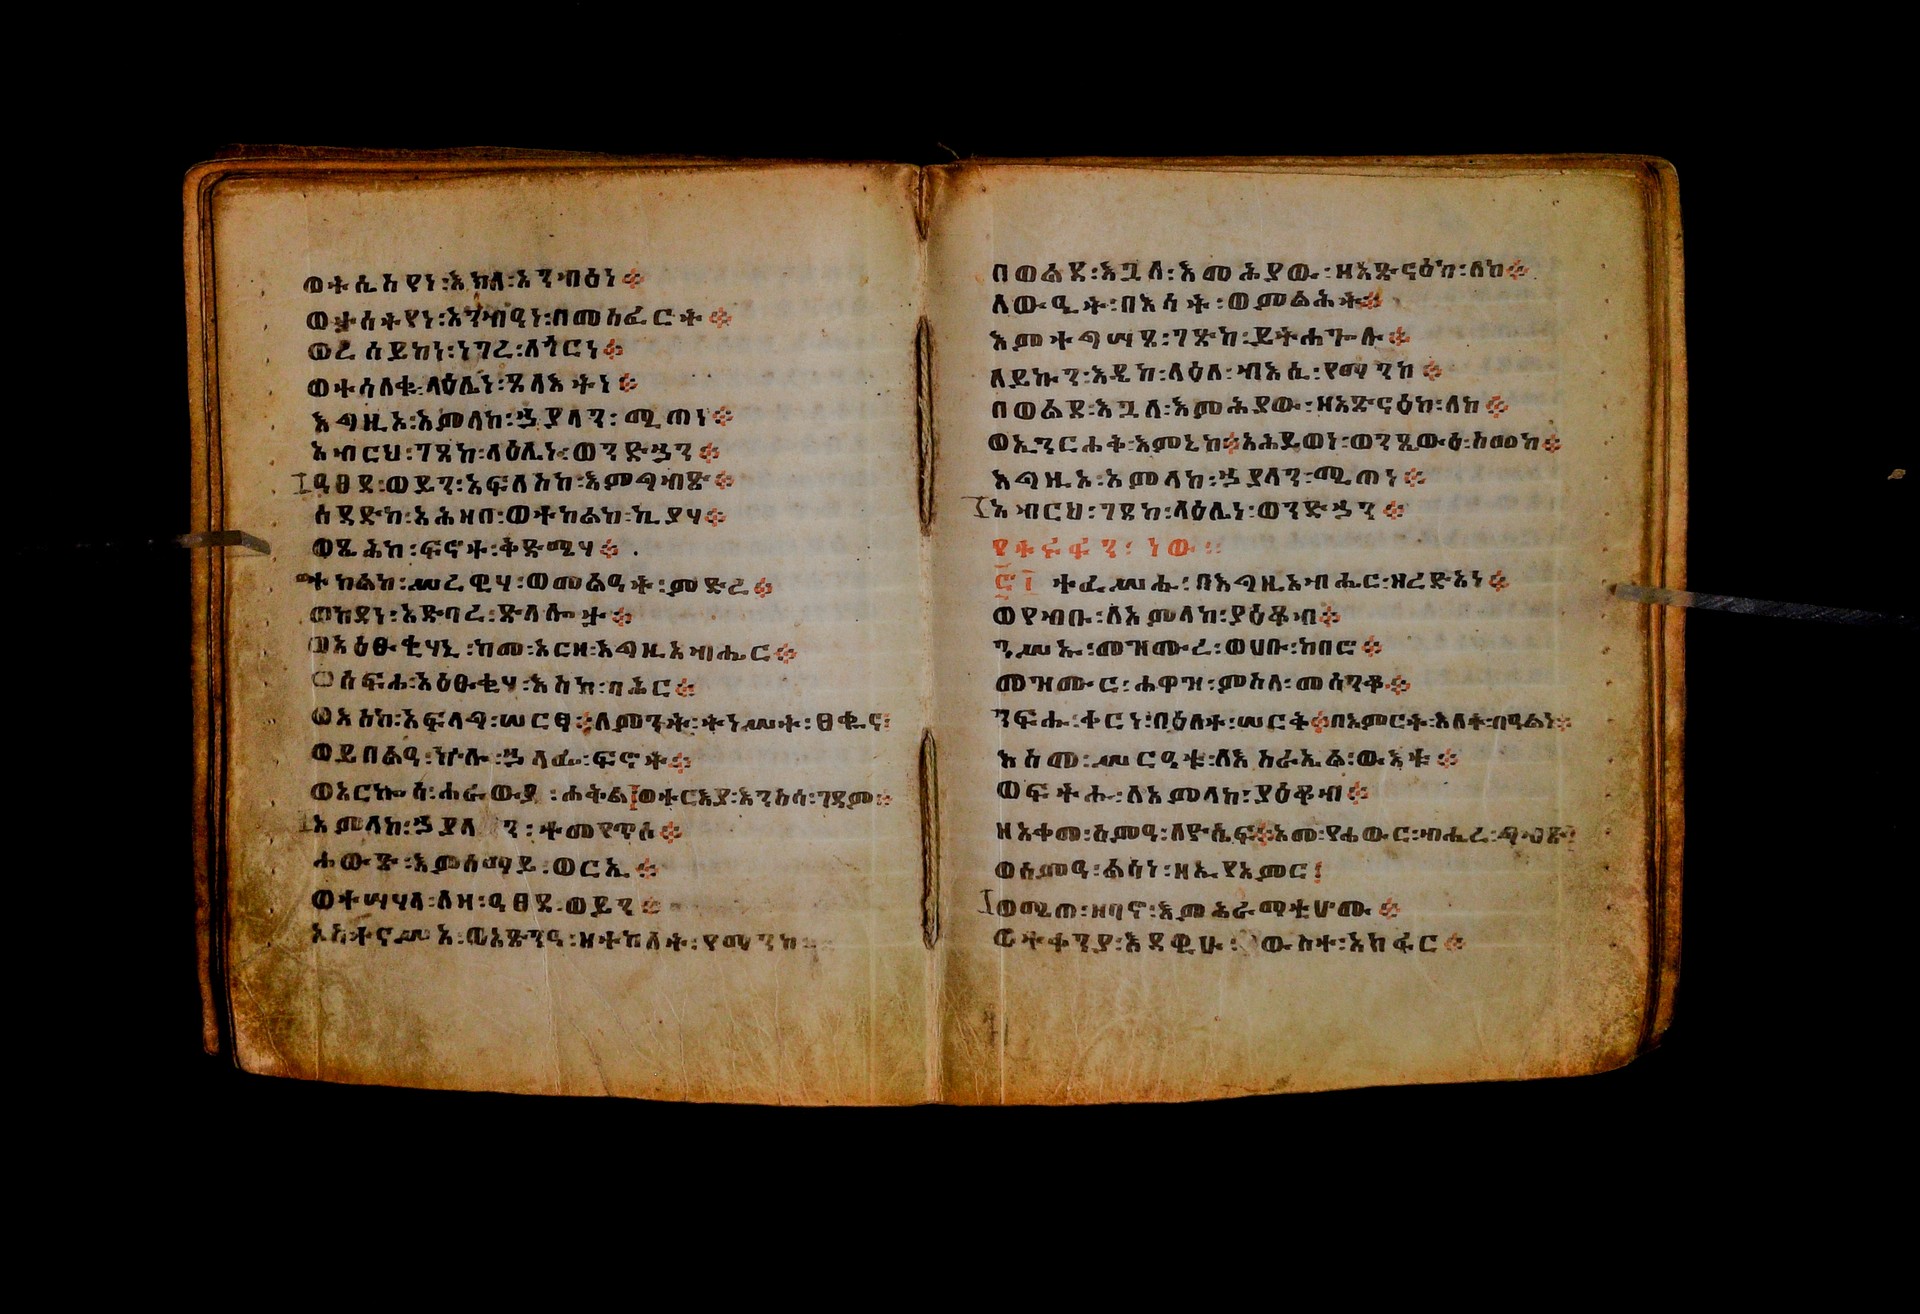 ወተሴሰየነ፡እክለ፡አንብዕነ።
ወተስተየነ፡አንብዓነ፡በመስፈርት።
ወረሰይከነ፡ነገረ፡ለጎርነ።
ወተሳለቁ፡ላዕሌነ፡ጸላእትነ።
እግዚኦ፡አምላከ፡ኃያላን፡ሚጠነ።
አብርህ፡ገጸከ፡ላዕሌነ፡ወንድኃን።
ዓፀደ፡ወይን፡አፍለስከ፡እምግብጽ።
ሰደድከ፡አሕዛበ፡ወተከልከ፡ኪያሃ።
ወጼሕከ፡ፍኖተ፡ቅድሜሃ።
ተከልከ፡ሥረዊሃ፡ወመልዓት፡ምድረ።
ወከደነ፡አድባረ፡ጽላሎታ።
ወአዕፁቂሃኒ፡ከመ፡አርዘ፡እግዚአብሔር።
ወሰፍሐ፡አዕፁቂሃ፡እስከ፡ባሕር።
ወእስከ፡አፍላግ፡ሠርፃ።ለምንት፡ተነሥተ፡ፀቁና፡
ወይበልዓ፡ኵሉ፡ኃላፌ፡ፍኖት።
ወአርኰሰ፡ሐራውያ፡ሐቅል።ወተርእያ፡እንስሳ፡ገዳም።
አምላከ፡ኃያላን፡ተመየጥሰ።
ሐውጽ፡እምሰማይ፡ወርኢ።
ወተሣሃላ፡ለዛ፡ዓፀደ፡ወይን።
ወአጽንዓ፡ዘተከለት፡የማንከ።
በወልደ፡እጓለ፡እመሕያው፡ዘአጽናዕከ፡ለከ።
ለውዒት፡በእሳት፡ወምልሕት።
እምተግሣጸ፡ገጽከ፡ይትሐጐሉ።
ለይኩን፡እዴከ፡ላዕለ፡ብእሴ፡የማንከ።
በወልደ፡እጓለ፡እመሕያው፡ዘአጽናዕከ፡ለከ።
ወኢንርሐቅ፡እምኔከ።አሕይወነ፡ወንጼውዕ፡ስመከ።
እግዚኦ፡አምላከ፡ኃያላን፡ሚጠነ።
አብርህ፡ገጸከ፡ላዕሌነ፡ወንድኃን።
የተሩፋን፡ነው።
፹ ተፈሥሑ፡በእግዚአብሔር፡ዘረድአነ።
ወየብቡ፡ለአምላከ፡ያዕቆብ።
ንሥኡ፡መዝሙረ፡ወሀቡ፡ከበሮ።
መዝሙር፡ሐዋዝ፡ምስለ፡መሰንቆ።
ንፍሑ፡ቀርነ፡በዕለተ፡ሠርቅ።በእምርት፡ዕለት፡በዓልነ።
እስመ፡ሥርዓቱ፡ለእስራኤል፡ውእቱ።
ወፍትሑ፡ለአምላከ፡ያዕቆብ።
ዘአቀመ፡ስምዓ፡ለዮሴፍ።አመ፡የሐውር፡ብሔረ፡ግብጽ፡
ወሰምዓ፡ልሳነ፡ዘኢየአምር፡
ወሜጠ፡ዘባኖ፡እምሕራማቲሆሙ።
ወተቀንያ፡እደዊሁ፡ውስተ፡አክፋር።